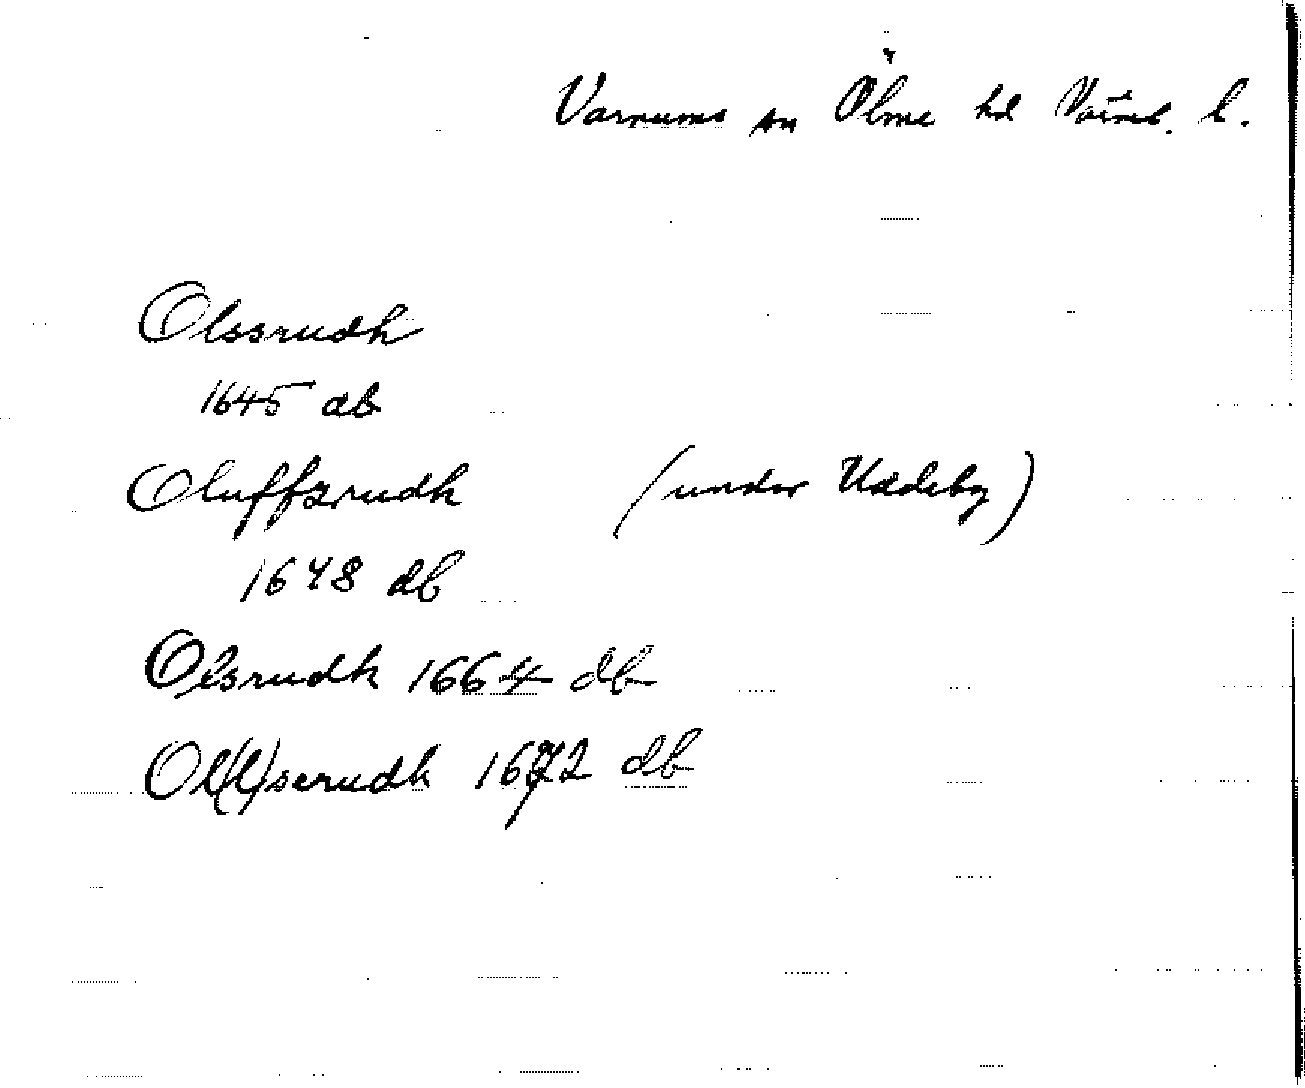 Varnums sn Ölme hd Värml. l.
Olssrudh
1645 db
Oluffzrudh (under Uddeby)
1648 db
Olsrudh 1664 db
Ol(l)serudh 1672 db